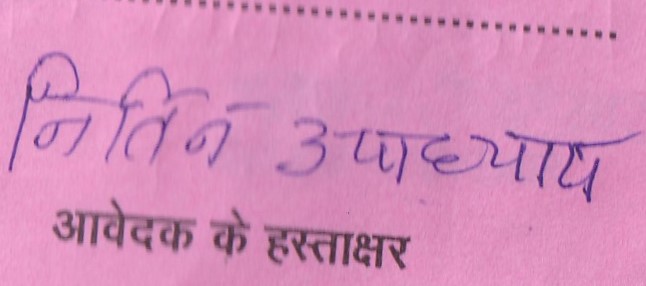 नितिन उपाध्याय
आवेदक के हस्ताक्षर